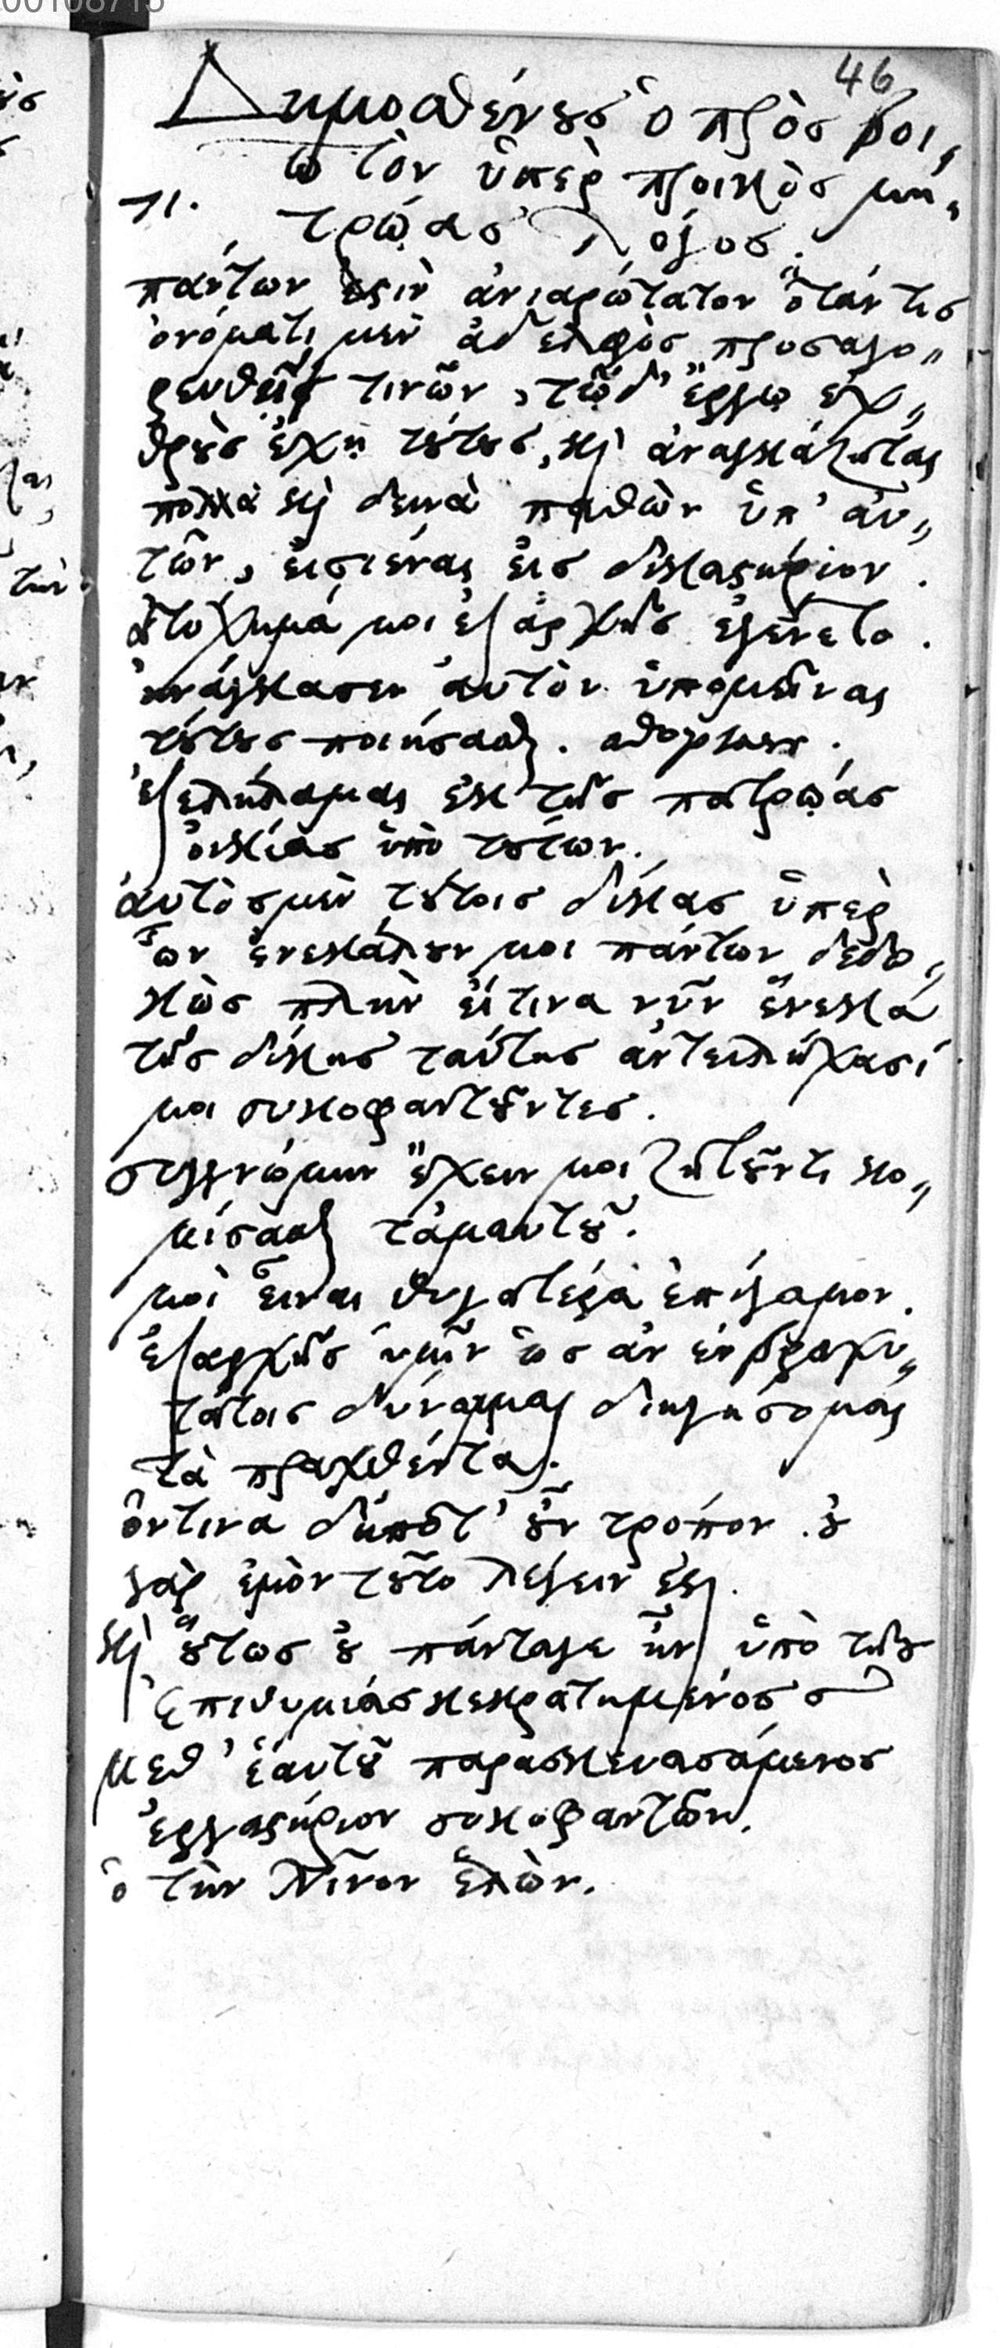 00108715
46
Δημοσθένους ὁ πρὸς βοι,,
ωτὸν ὑπὲρ προικὸς μη,,
τρῴας λόγος.
πάντων ἐστὶν ἀνιαρώτατον ὅτάν τις
ὀνόματι μεν ἀδελφὸς προσαγο,,
ρευθῆ τινῶν, τῷ δ' ἔργῳ ἐχ,,
θροὺς ἔχῃ τούτους, καὶ ἀναγκάζηται
πολλὰ καὶ δεινὰ παθὼν ὑπ' αὐ,,
τῶν, εἰσιέναι εἰς δικαστήριον.
ἀτύχημά μοι ἐξ ἀρχῆς ἐγένετο.
ἠνάγκασεν αὐτὸν ὑπομεῖναι
τούτους ποιήσασθαι.
ἐξελήλαμαι ἐκ τῆς πατρῴας
οἰκίας ὑπὸ τούτων.
αὐτὸς μὲν τούτοις δίκας ὑπὲρ
ὧν ἐνεκάλουν μοι πάντων δεδω,,
κὼς πλὴν εἴ τινα νῦν ἕνεκα
τῆς δίκης ταύτης ἀντειλήχασί
μοι συκοφαντοῦντες.
συγγνώμην ἔχειν μοι ζητοῦντι κο,,
μίσασθαι τἀμαυτοῦ.
μοὶ εἶναι θυγατέρα ἐπίγαμον.
ἐξαρχῆς ὑμῖν ὡς ἂν ἐν βραχυ,,
τάτοις δύναμαι διηγήσομαι
τὰ πραχθέντα.
ὅντινα δήποτ' οὖν τρόπον. οὐ
γὰρ ἐμὸν τοῦτο λέγειν ἐστι.
καὶ οὕτως οὐ πάνταγε ἦν ὑπὸ τῆς
ἐπιθυμίας κεκρατημένος
μεθ' ἑαυτοῦ παρασκευασάμενος
ἐργαστήριον συκοφαντῶν.
ὁ τὴν Νῖνον ἑλὼν.